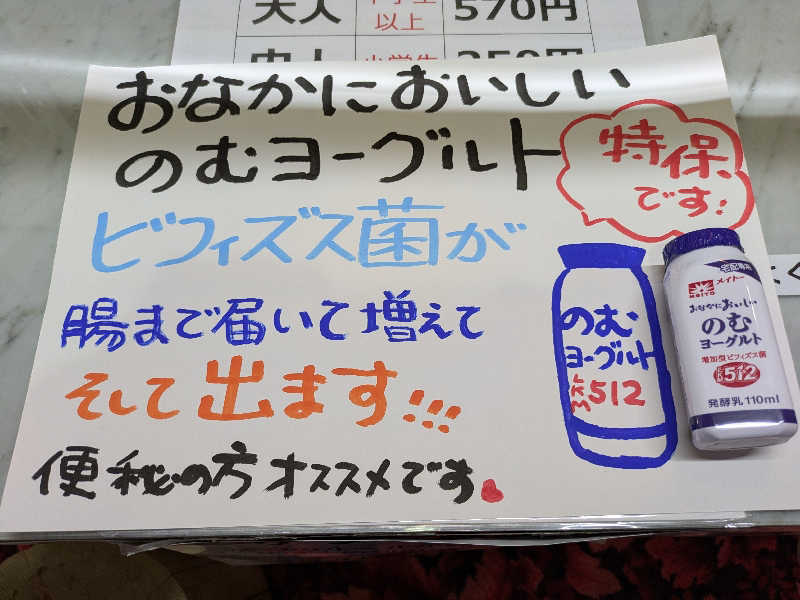 大人 中学生以上 570円
おなかにおいしい
のむヨーグルト
特保
です!
ビフィズス菌が
腸まで届いて増えて
そして出ます!!!
便秘の方オススメです。
のむ
ヨーグルト
LKM
512
宅配専用
MEITO メイトー
おなかにおいしい
のむ
ヨーグルト
増加型ビフィズス菌
LKM512
発酵乳 110ml